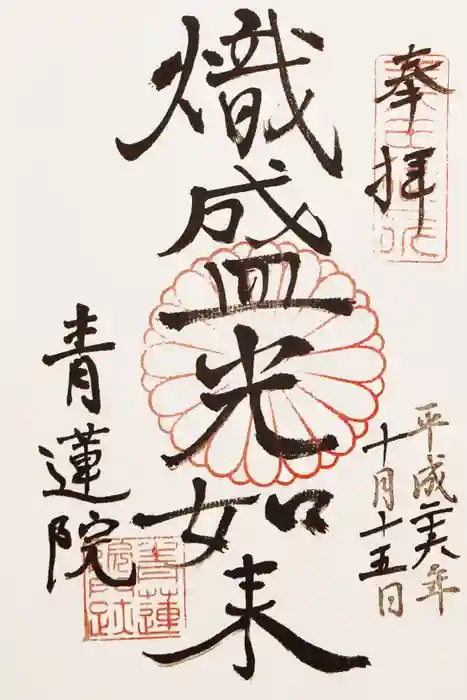 奉拝
平成二十六年
十月十五日
熾盛光如来
青蓮院